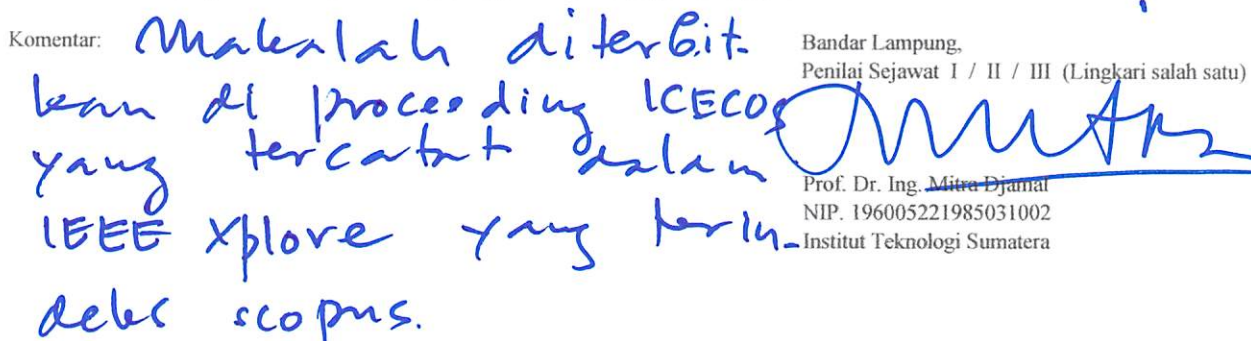 Komentar: Makalah diterbit-
kan di proceeding ICECOS
yang tercatat dalam
IEEE Xplore yang terin-
deks scopus.
Bandar Lampung,
Penilai Sejawat I / II / III (Lingkari salah satu)
Prof. Dr. Ing. Mitra Djamal
NIP. 196005221985031002
Institut Teknologi Sumatera